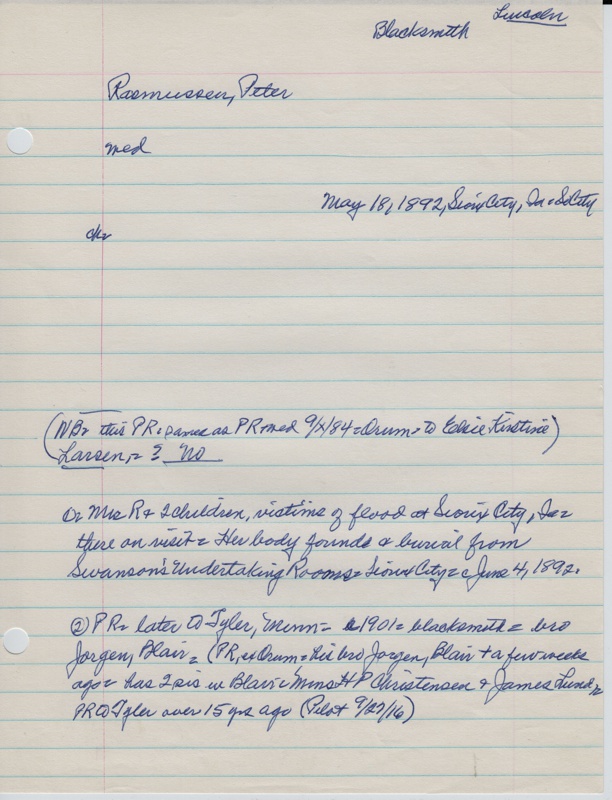 Lincoln
Blacksmith
Rasmussen, Peter
med
May 18, 1892, Sioux City, Ia = S City
ch=
(NB= this PR= same as PR= med 9/x/84 = Orum = to Elsie Kirstine)
Larsen, = ? No
① = Mrs R + 2 children, victims of flood at Sioux City, Ia =
there on visit = Her body found = & burial from
Swanson's Undertaking Rooms = Sioux City = c June 4, 1892.
② PR = later to Tyler, Minn = 1901 = blacksmith = bro
Jorgen, Blair = (PR, ex Orum = his bro Jorgen, Blair + a few weeks
ago = has 2 sis in Blair = Mmes H P Christensen + James Lund,
PR to Tyler over 15 yrs ago (Pilot 9/27/16)